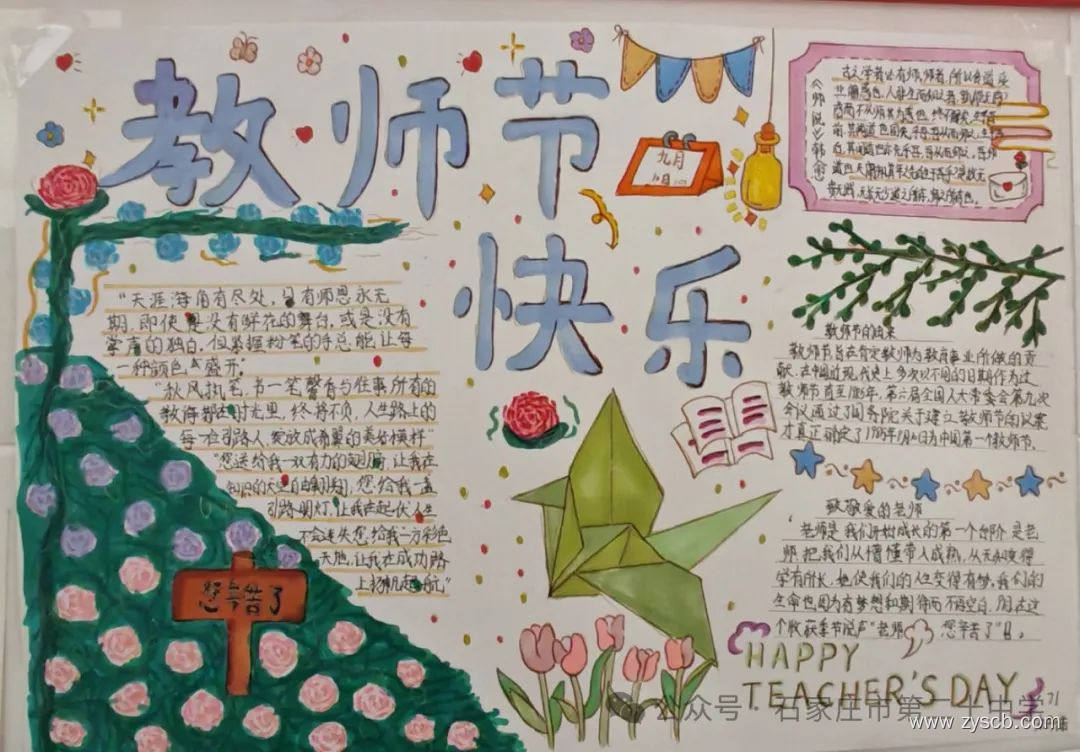 教师节
快乐
九月
10日
《师说》韩愈
古之学者必有师,师者,所以传道受
业解惑也。人非生而知之者,孰能无
惑而不从师,其为惑也,终不解矣。生乎吾
前,其闻道也固先乎吾,吾从而师之,生乎
道也,夫庸知其年之先后生于吾乎?是故无
贵无贱,无长无少,道之所存,师之所存也。
“天涯海角有尽处,只有师恩永无
期。即使是没有鲜花的舞台,或是没有
掌声的独白,但紧握粉笔的手总能让每
一种颜色盛开。”
“秋风执笔,书一笔馨香与往事,所有的
教诲都在时光里,终将不负,人生路上的
每一位引路人,绽放成希翼的美好模样”
“您送给我一双有力的翅膀,让我在
知识的天空自由翱翔,您给我一盏
引路明灯,让我在起伏人生
不会迷失,您给我一方彩色
天地,让我在成功路
上扬帆起航”
您辛苦了
教师节的由来
教师节旨在肯定教师为教育事业所做的贡
献。在中国近现代史上,多次以不同的日期作为过
教师节。直至1985年,第六届全国人大常委会第九次
会议通过了国务院关于建立教师节的议案
才真正确定了1985年9月10日为中国第一个教师节。
致敬爱的老师
老师是我们开始成长的第一个台阶,是老
师把我们从懵懂带入成熟,从无知变得
学有所长。她使我们的人生变得有梦,我们的
生命也因为有梦想和期待而不再空白。用在这
个收获季节说声“老师 您辛苦了”!
HAPPY
TEACHER'S DAY
公众号 石家庄市第二十中学
www.zyscb.com